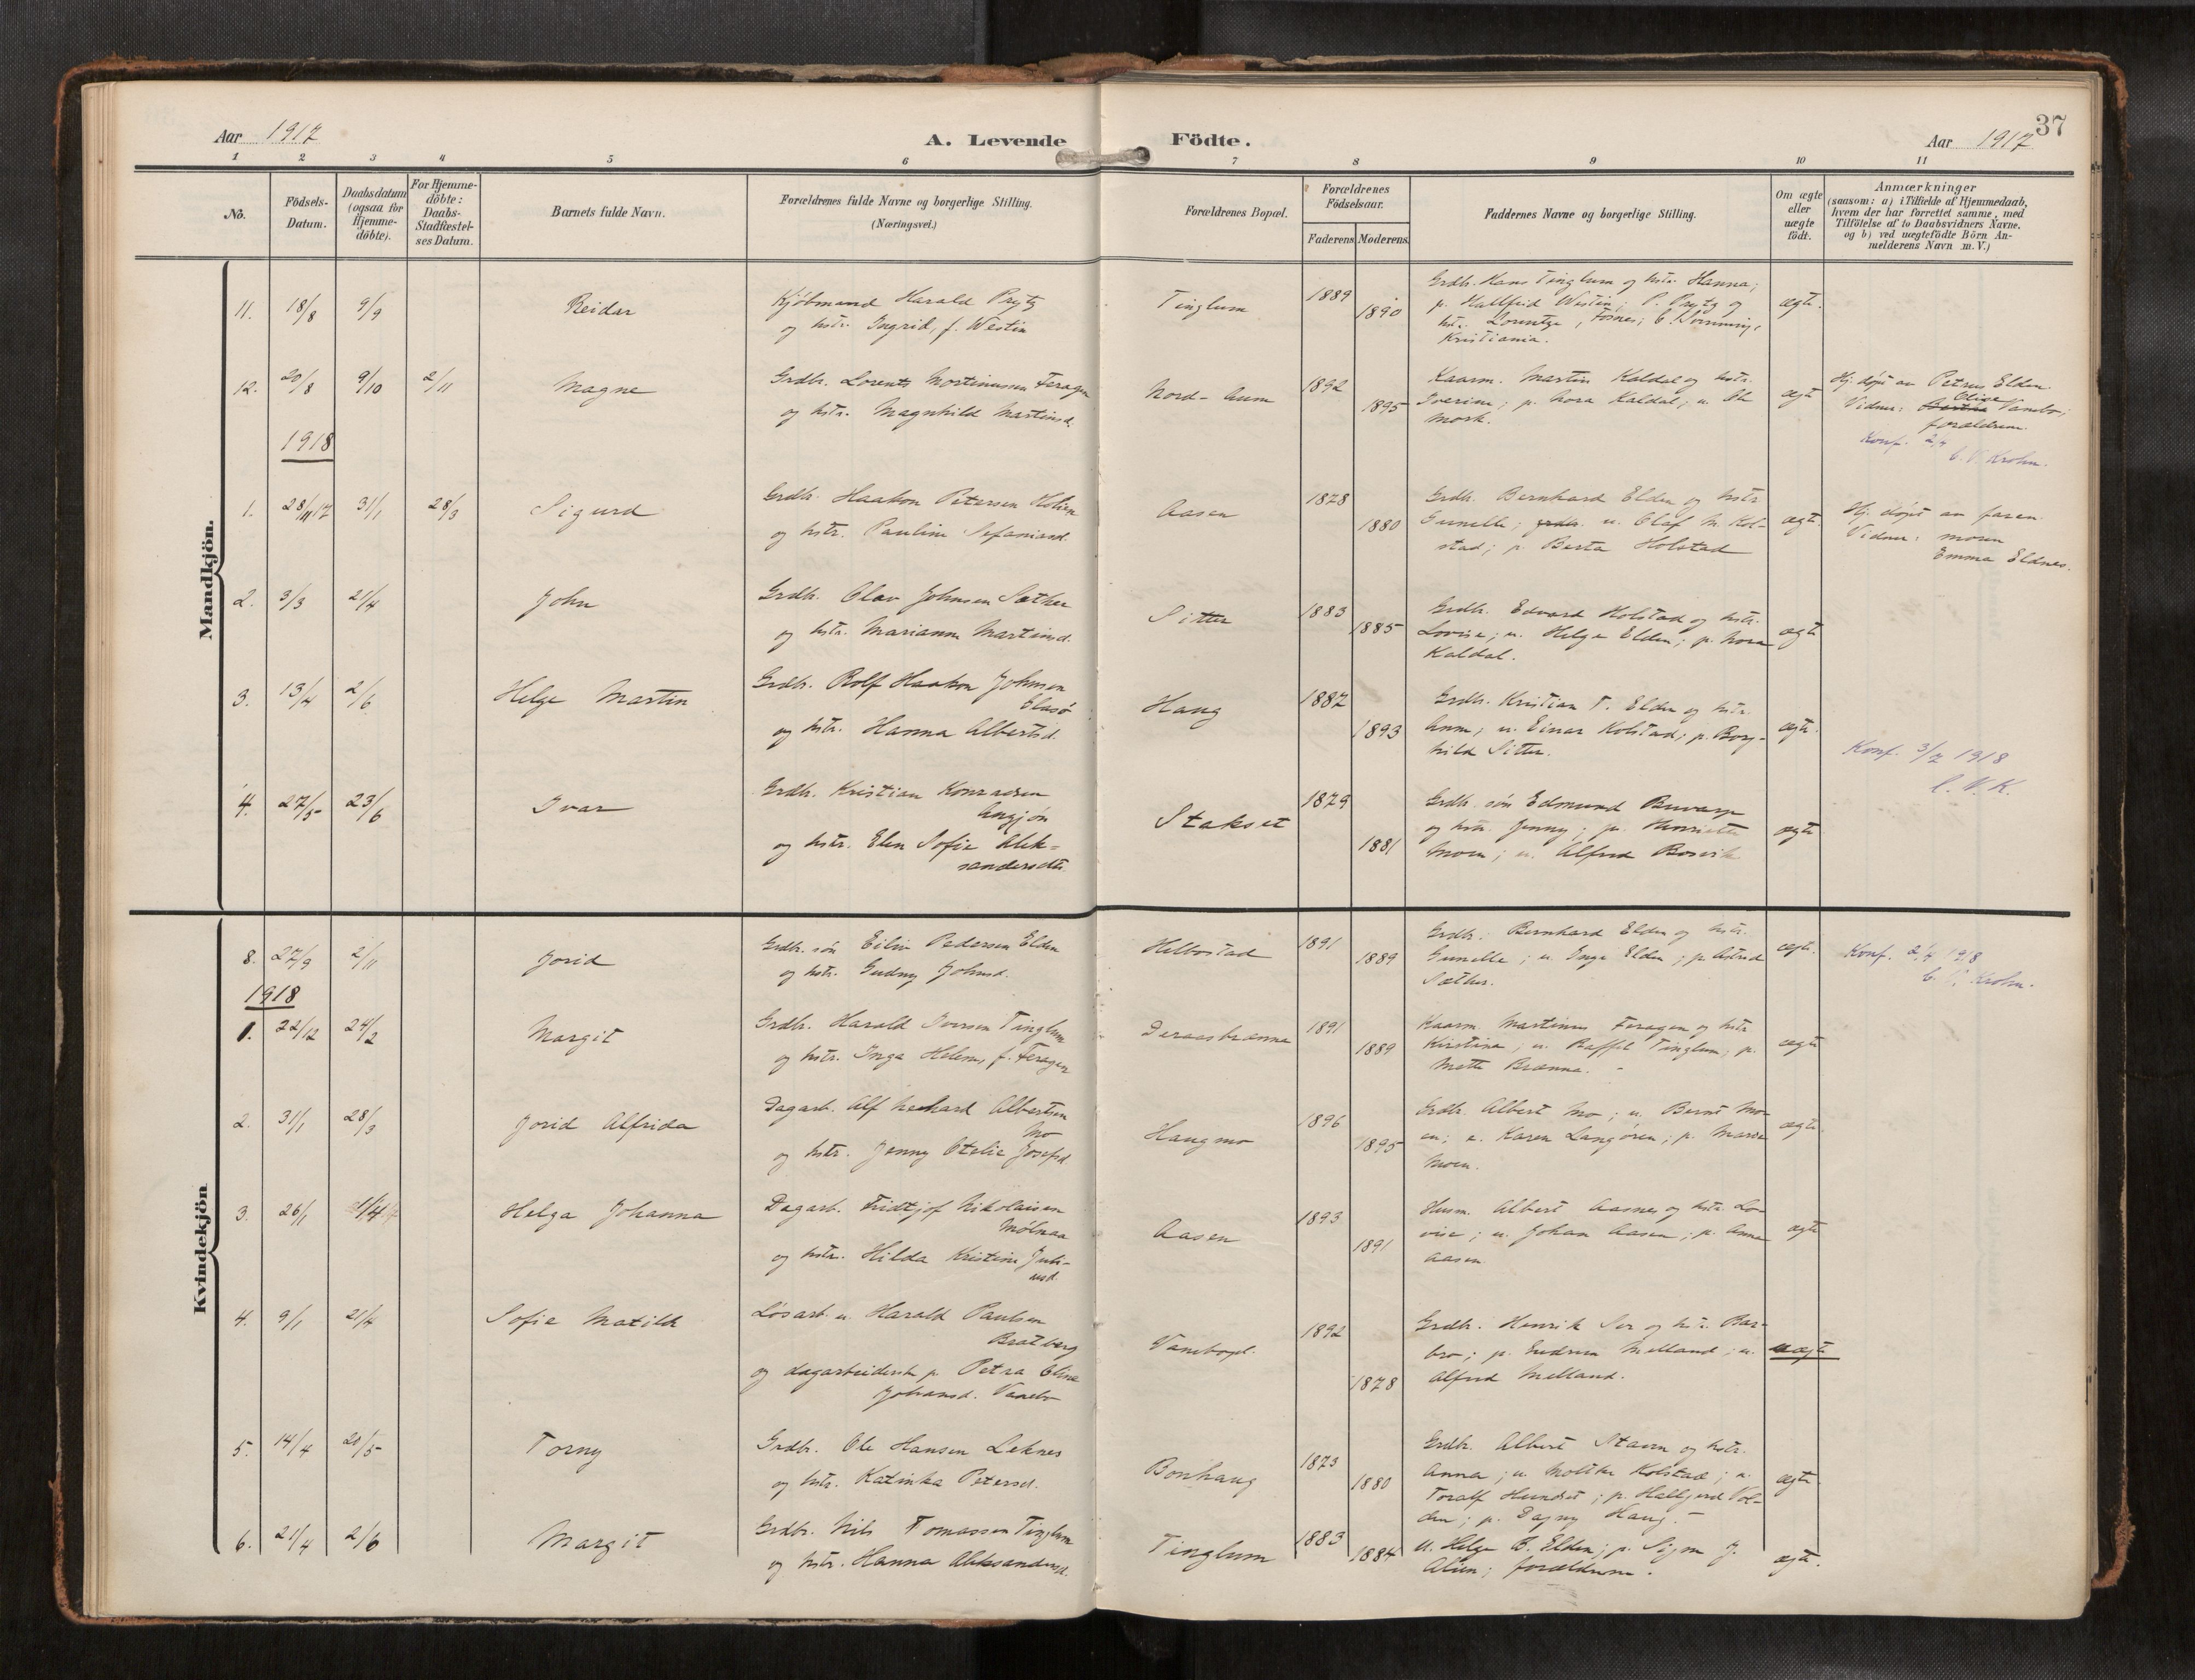 37
Aar 1917
A. Levende Födte.
Aar 1917
1 2 3 4 5 6 7 8 9 10 11
No.
Födsels-Datum.
Daabsdatum (ogsaa for Hjemme-döbte).
For Hjemme-döbte: Daabs-Stadfæstel-ses Datum.
Barnets fulde Navn.
Forældrenes fulde Navne og borgerlige Stilling.
(Næringsvei.)
Forældrenes Bopæl.
Forældrenes Födselsaar.
Faderens. Moderens.
Faddernes Navne og borgerlige Stilling.
Om ægte eller uægte födt.
Anmærkninger
(saasom: a) i Tilfælde af Hjemmedaab,
hvem der har forrettet samme, med
Tilföielse af to Daabsvidners Navne,
og b) ved uægtefödte Börn An-
melderens Navn m. V.)
Mandkjön.
11. 18/8 9/9 Reidar
Kjöbmand Harald Prytz
og hstr. Ingrid, f. Westin
Tinglum 1889 1890
Grdb. Hans Tinglum og hstr. Hanna;
p. Hallfrid Westin; P. Prytz og
hstr. Lorentze, Fosnes;
Kristiania.
ægte.
12. 20/8 9/10 2/11 Magne
Grdbr. Lorents Mortinussen Feragen
og hstr. Magnhild Martinsd.
Nord- 1892 1895
Kaarm. Martin Kaldal og hstr.
Iverine; p. Nora Kaldal; u. Ole
Mork.
ægte
Hj. døpt av Petrus Elden
Vidner: Olise Vanebo;
forældrene.
Konf. 2/4
C. V. Krohn.
1918
1. 28/11 17 31/1 28/3 Sigurd
Grdb. Haakon Petersen Holien
og hstr. Pauline Sefaniasd.
Aasen 1878 1880
Grdb. Bernhard Elden og hstr
Gunelle; u. Olaf M. Kol-
stad; p. Berta Holstad
ægte.
Hj. døpt av faren
Vidner: moren
Emma Eldnes.
2. 3/3 21/4 John
Grdb. Olav Johnsen Sæther
og hstr. Marianne Martinsd.
Sitter 1883 1885
Grdb. Edvard Holstad og hstr.
Lovise; u. Helge Elden; p. Nora
Kaldal.
ægte
3. 13/4 2/6 Helge Martin
Grdb. Rolf Haakon Johnsen
Elasö
og hstr. Hanna Albertsd.
Haug 1887 1893
Grdb. Kristian T. Elden og hstr.
Anna; u. Einar Kolstad; p. Borg-
hild Sitter.
ægte.
Konf. 3/7 1918
C. V. K.
4. 27/5 23/6 Ivar
Grdb. Kristian Konradsen
og hstr. Elen Sofie Alek-
sandersdtr.
Stakset 1879 1881
Grdb. sön Edmund
og hstr. Jenny; p. Henriette
Moen; u. Alfred
ægte
Kvindekjön
8. 27/9 2/11 Jorid
Grdb. sön Eiliv Pedersen Elden
og hstr. Gudny Johnsd.
Helbostad 1891 1889
Grdb. Bernhard Elden og hstr.
Gunelle; u. Inge Elden; p. Astrid
Sæther.
ægte.
Konf. 2/4 1918
C. V. Krohn.
1918
1. 22/12 24/2 Margit
Grdb. Harald Iversen Tinglum
og hstr. Inga Helene, f. Feragen
Deraasbrænna 1891 1889
Kaarm. Martinus Feragen og hstr
Kirstine; u. Baffel Tinglum; p.
Mette Brænne.
ægte
2. 31/1 28/3 Jorid Alfrida
Dagarb. Alf Albertsen
Mo
og hstr. Jenny Otelie Josefsd.
Haugmo 1896 1895
Grdb. Albert Mo; u. Bernt Mo-
en; p. Karen Langören; p. Marie
Moen.
ægte.
3. 26/1 1/4 Helga Johanna
Dagarb. Fridtjof Nikolaisen
Mölnaa
og hstr. Hilda Kristine Juli-
usd.
Aasen 1893 1891
Husm. Albert Aasnes og hstr. Lo-
vise; u. Johan Aasen; p. Anna
Aasen
ægte
4. 9/1 21/4 Sofie Matilde
Lösarb. u. Harald Paulsen
Bratberg
og dagarbeiderske p. Petra Oline
Johansd. Vanebo
Vanebopl. 1892 1878
Grdb. Henrik Ser og hstr. Bar-
bro; p. Gudrun Melland; u.
Alfred Melland.
uægte
5. 14/4 20/5 Torny
Grdbr. Ole Hansen Leknes
og hstr. Katinka Petersd.
Bonhaug 1873 1880
Grdb. Albert Stavrn og hstr.
Anna; u. Moltke Kolstad; u.
Toralf Hundset; p. Halbjørd Vol-
den; p. Dagny Haug.
ægte.
6. 21/4 2/6 Margit
Grdbr. Nils Tomassen Tinglum
og hstr. Hanna Aleksandersd.
Tinglum 1883 1884
U. Helge B. Elden; p. Sigm J.
forældrene.
ægte.